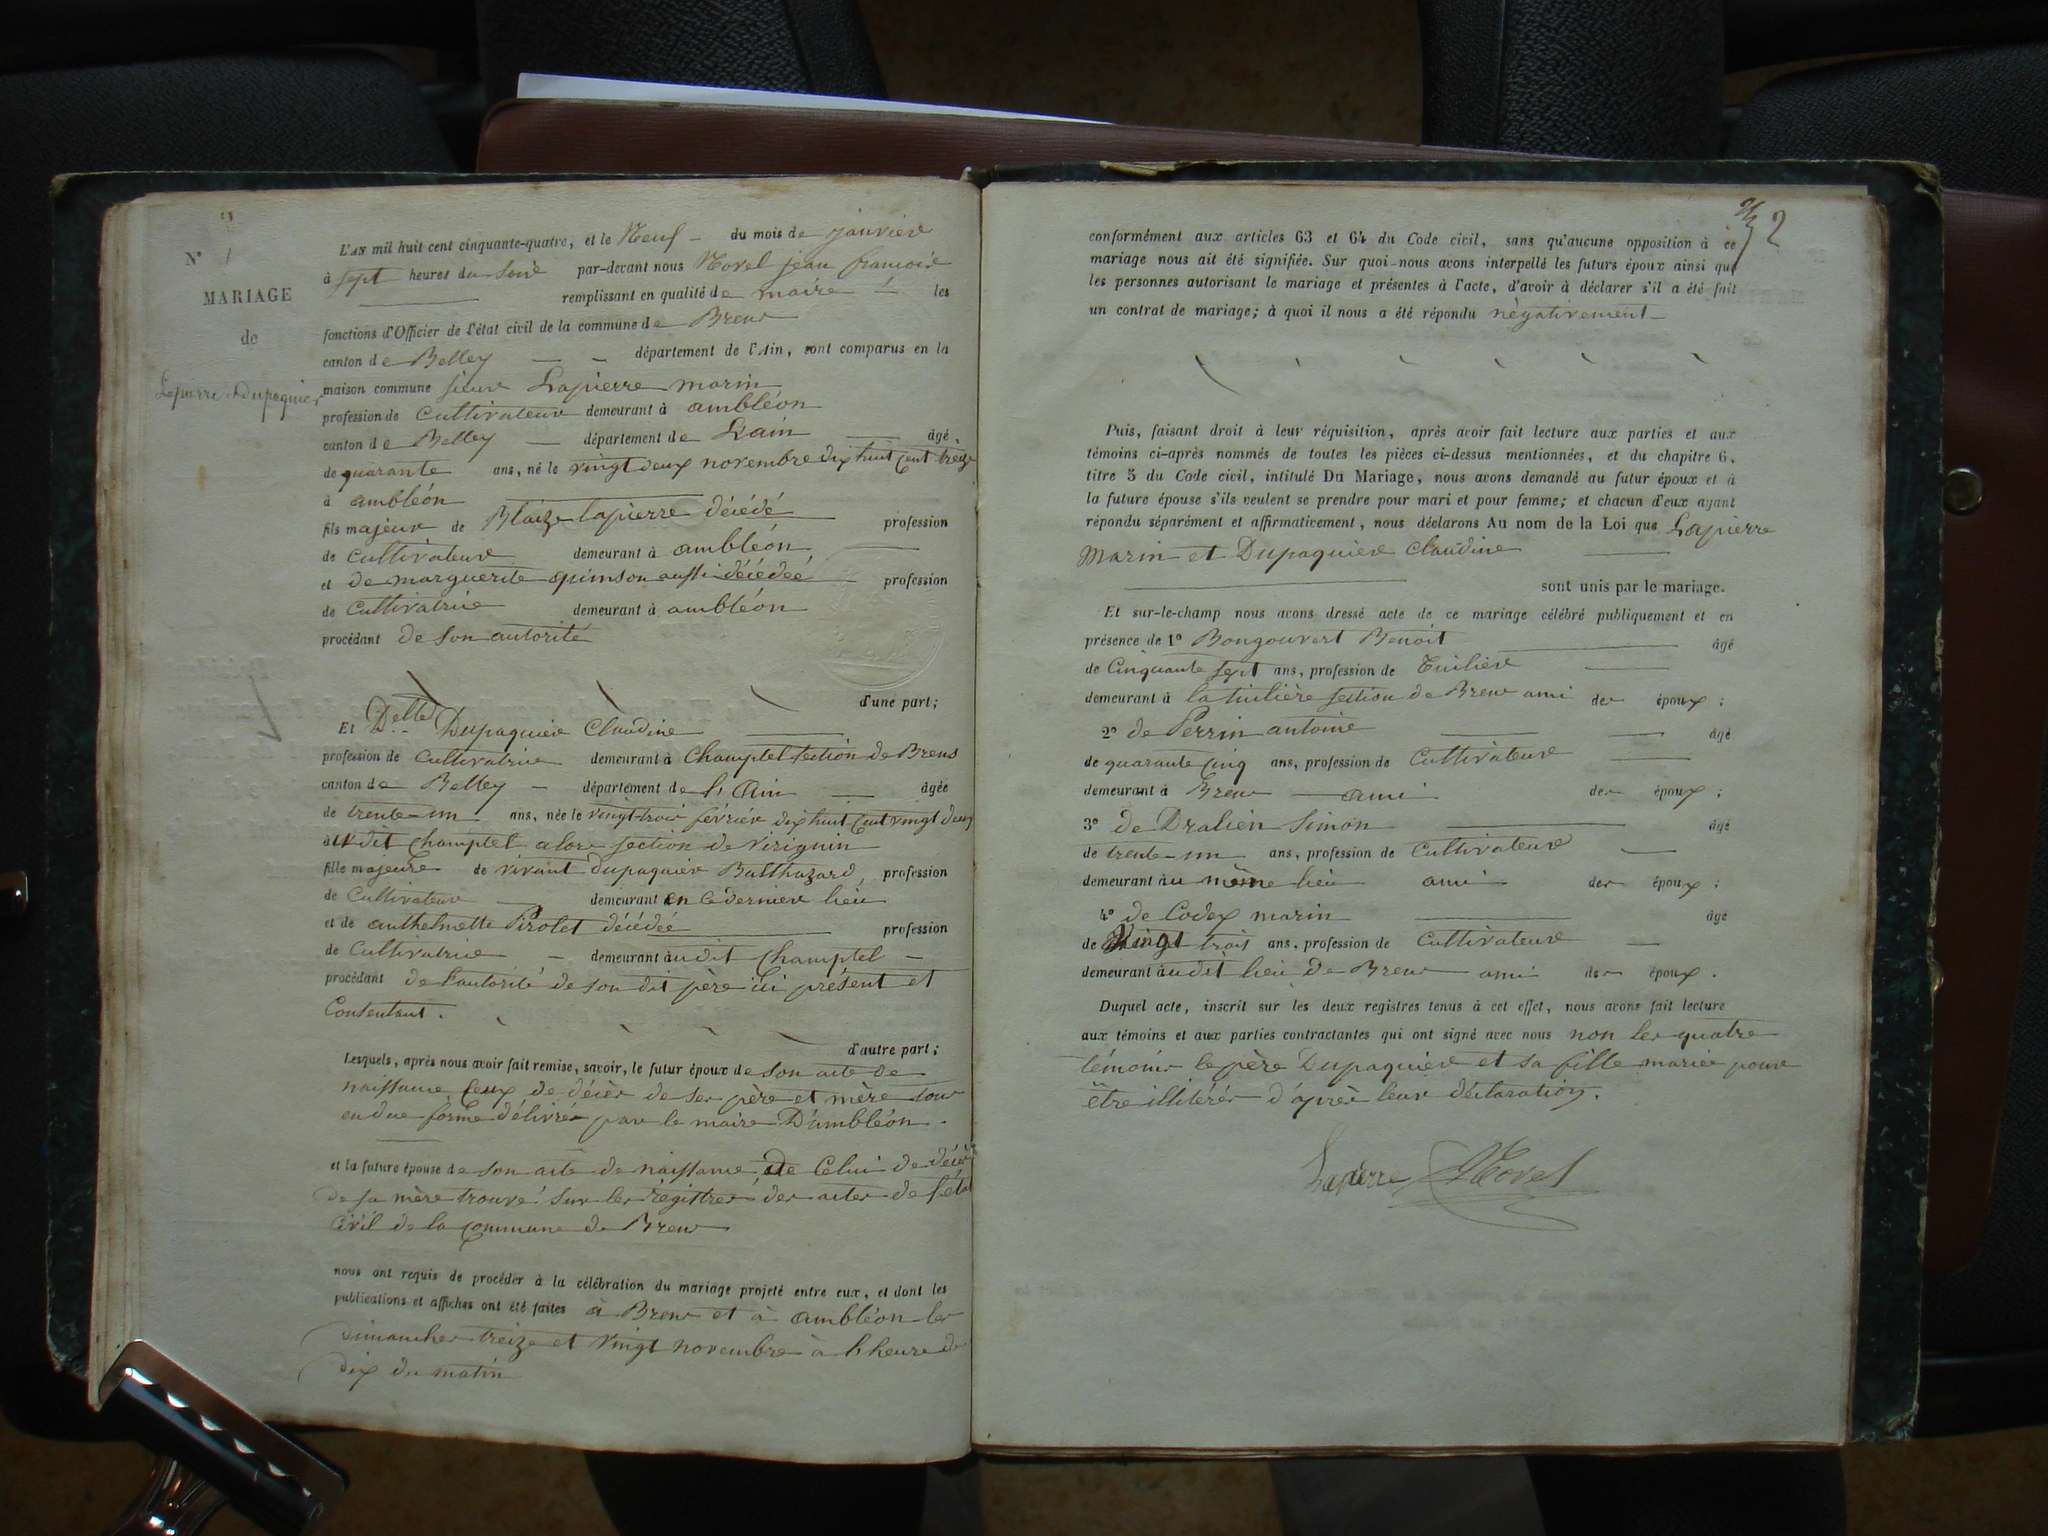 N° 1
MARIAGE
de
Lapierre & Dupaquier
L'AN mil huit cent cinquante-quatre, et le Neuf du mois de janvier
à sept heures du soir par-devant nous Novel jean francois
remplissant en qualité de maire les
fonctions d'Officier de l'état civil de la commune de Brens
canton de Belley département de l'Ain, sont comparus en la
maison commune sieur Lapierre marin
profession de cultivateur demeurant à ambléon
canton de Belley département de L'ain âgé
de quarante ans, né le vingt deux novembre dix huit cent treize
à ambléon
fils majeur de Blaize lapierre décédé profession
de cultivateur demeurant à ambléon
et de marguerite spinson aussi décédeé profession
de cultivatrice demeurant à ambléon
procédant de son autorité
d'une part;
Et Delle Dupaquier Claudine
profession de cultivatrice demeurant à Champtel section de Brens
canton de Belley département de l'Ain âgée
de trente-un ans, née le vingt-trois février dix huit cent vingt deux
audit champtel alors section de virignin
fille majeure de vivant Dupaquier Balthazard, profession
de cultivateur demeurant en ce dernier lieu
et de anthelmette Pirolet décédée profession
de cultivatrice demeurant audit champtel
procédant de l'autorité de son dit père ici présent et
consentant.
d'autre part;
Lesquels, après nous avoir fait remise, savoir, le futur époux de son acte de
naissance, ceux de décès de ses père et mère tous
en due forme délivrés par le maire D'ambléon.
et la future épouse de son acte de naissance, de celui de décès
de sa mère trouvé sur les régistres des actes de l'état
civil de la commune de Brens
nous ont requis de procéder à la célébration du mariage projeté entre eux, et dont les
publications et affiches ont été faites à Brens et à ambléon les
dimanches treize et vingt novembre à l'heure de
dix du matin
2
conformément aux articles 63 et 64 du Code civil, sans qu'aucune opposition à ce
mariage nous ait été signifiée. Sur quoi nous avons interpellé les futurs époux ainsi que
les personnes autorisant le mariage et présentes à l'acte, d'avoir à déclarer s'il a été fait
un contrat de mariage; à quoi il nous a été répondu négativement
Puis, faisant droit à leur réquisition, après avoir fait lecture aux parties et aux
témoins ci-après nommés de toutes les pièces ci-dessus mentionnées, et du chapitre 6,
titre 5 du Code civil, intitulé Du Mariage, nous avons demandé au futur époux et à
la future épouse s'ils veulent se prendre pour mari et pour femme; et chacun d'eux ayant
répondu séparément et affirmativement, nous déclarons Au nom de la Loi que Lapierre
Marin et Dupaquier Claudine
sont unis par le mariage.
Et sur-le-champ nous avons dressé acte de ce mariage célébré publiquement et en
présence de 1° Bongouvert Benoit âgé
de Cinquante sept ans, profession de Tuilier
demeurant à la tuilière section de Brens ami des époux;
2° de Perrin antoine âgé
de quarante cinq ans, profession de cultivateur
demeurant à Brens ami des époux;
3° de Dralien Simon âgé
de trente-un ans, profession de cultivateur
demeurant au même lieu ami des époux;
4° de Codex marin âgé
de Vingt trois ans, profession de cultivateur
demeurant audit lieu de Brens ami des époux.
Duquel acte, inscrit sur les deux registres tenus à cet effet, nous avons fait lecture
aux témoins et aux parties contractantes qui ont signé avec nous non les quatre
témoins le père Dupaquier et sa fille mariée pour
être illitérés d'après leur déclaration.
Lapierre Novel